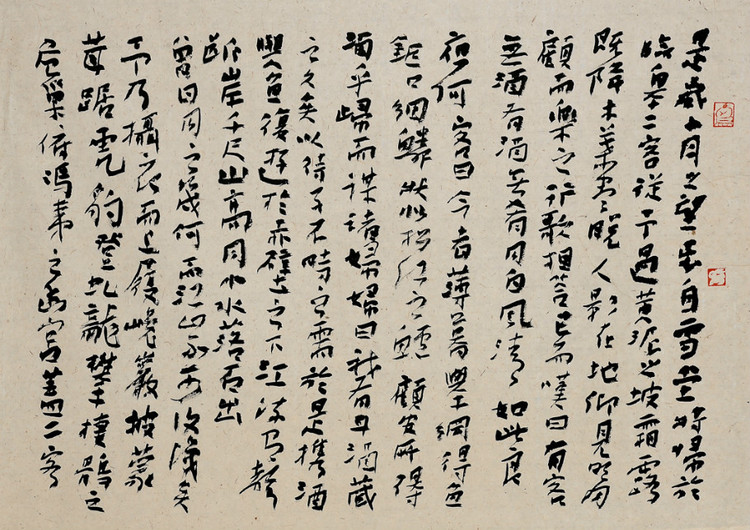 是歲十月之望步自雪堂將歸於
臨皋二客從予過黃泥之坡霜露
既降木葉盡脫人影在地仰見明月
顧而樂之行歌相答已而嘆曰有客
無酒有酒無肴月白風清如此良
夜何客曰今者薄暮舉網得魚
鉅口細鱗狀似松江之鱸顧安所得
酒乎歸而謀諸婦婦曰我有斗酒藏
之久矣以待子不時之需於是攜酒
與魚復遊於赤壁之下江流有聲
斷岸千尺山高月小水落石出
曾日月之幾何而江山不可復識矣
予乃攝衣而上履巉巖披蒙
茸踞虎豹登虬龍攀棲鶻之
危巢俯馮夷之幽宮蓋二客